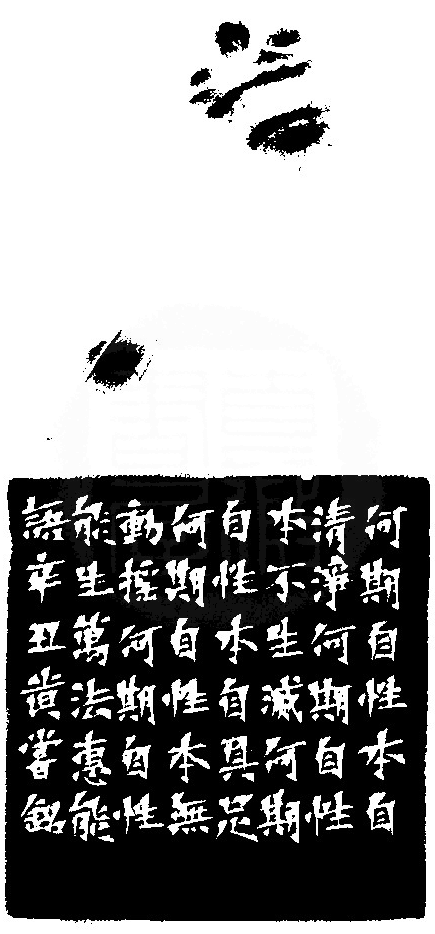 何期自性本自
清淨何期自性
本不生滅何期
自性本自具足
何期自性本無
動搖何期自性
能生萬法惠能
語辛丑黄嘗銘